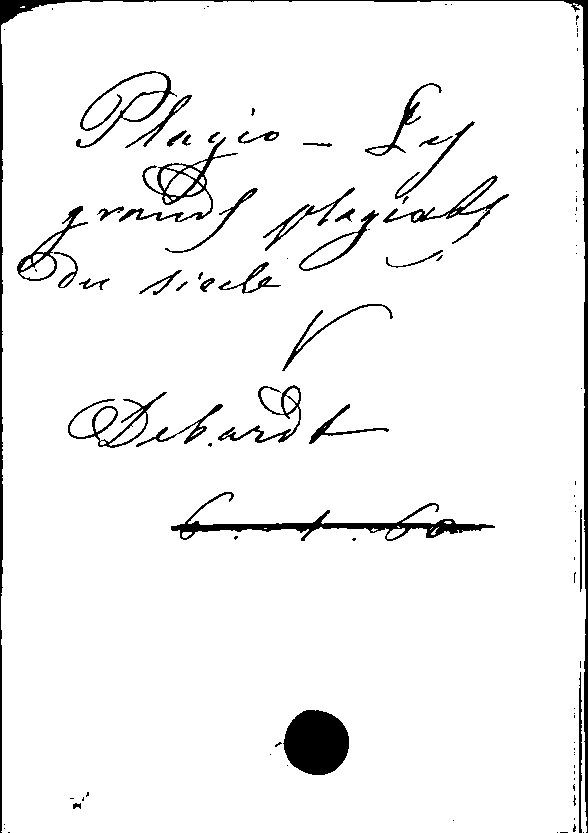 Plagio - Les
grands plagiats
du siecle
V
Debardt
6.1.60